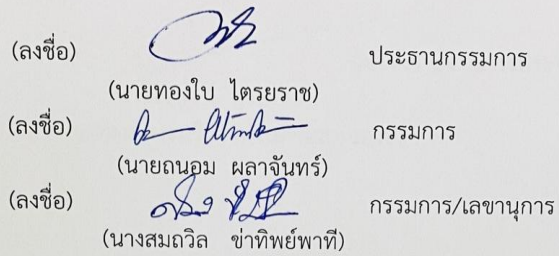 (ลงชื่อ) ประธานกรรมการ
(นายทองใบ ไตรยราช)
(ลงชื่อ) กรรมการ
(นายถนอม ผลาจันทร์)
(ลงชื่อ) กรรมการ/เลขานุการ
(นางสมถวิล ข่าทิพย์พาที)